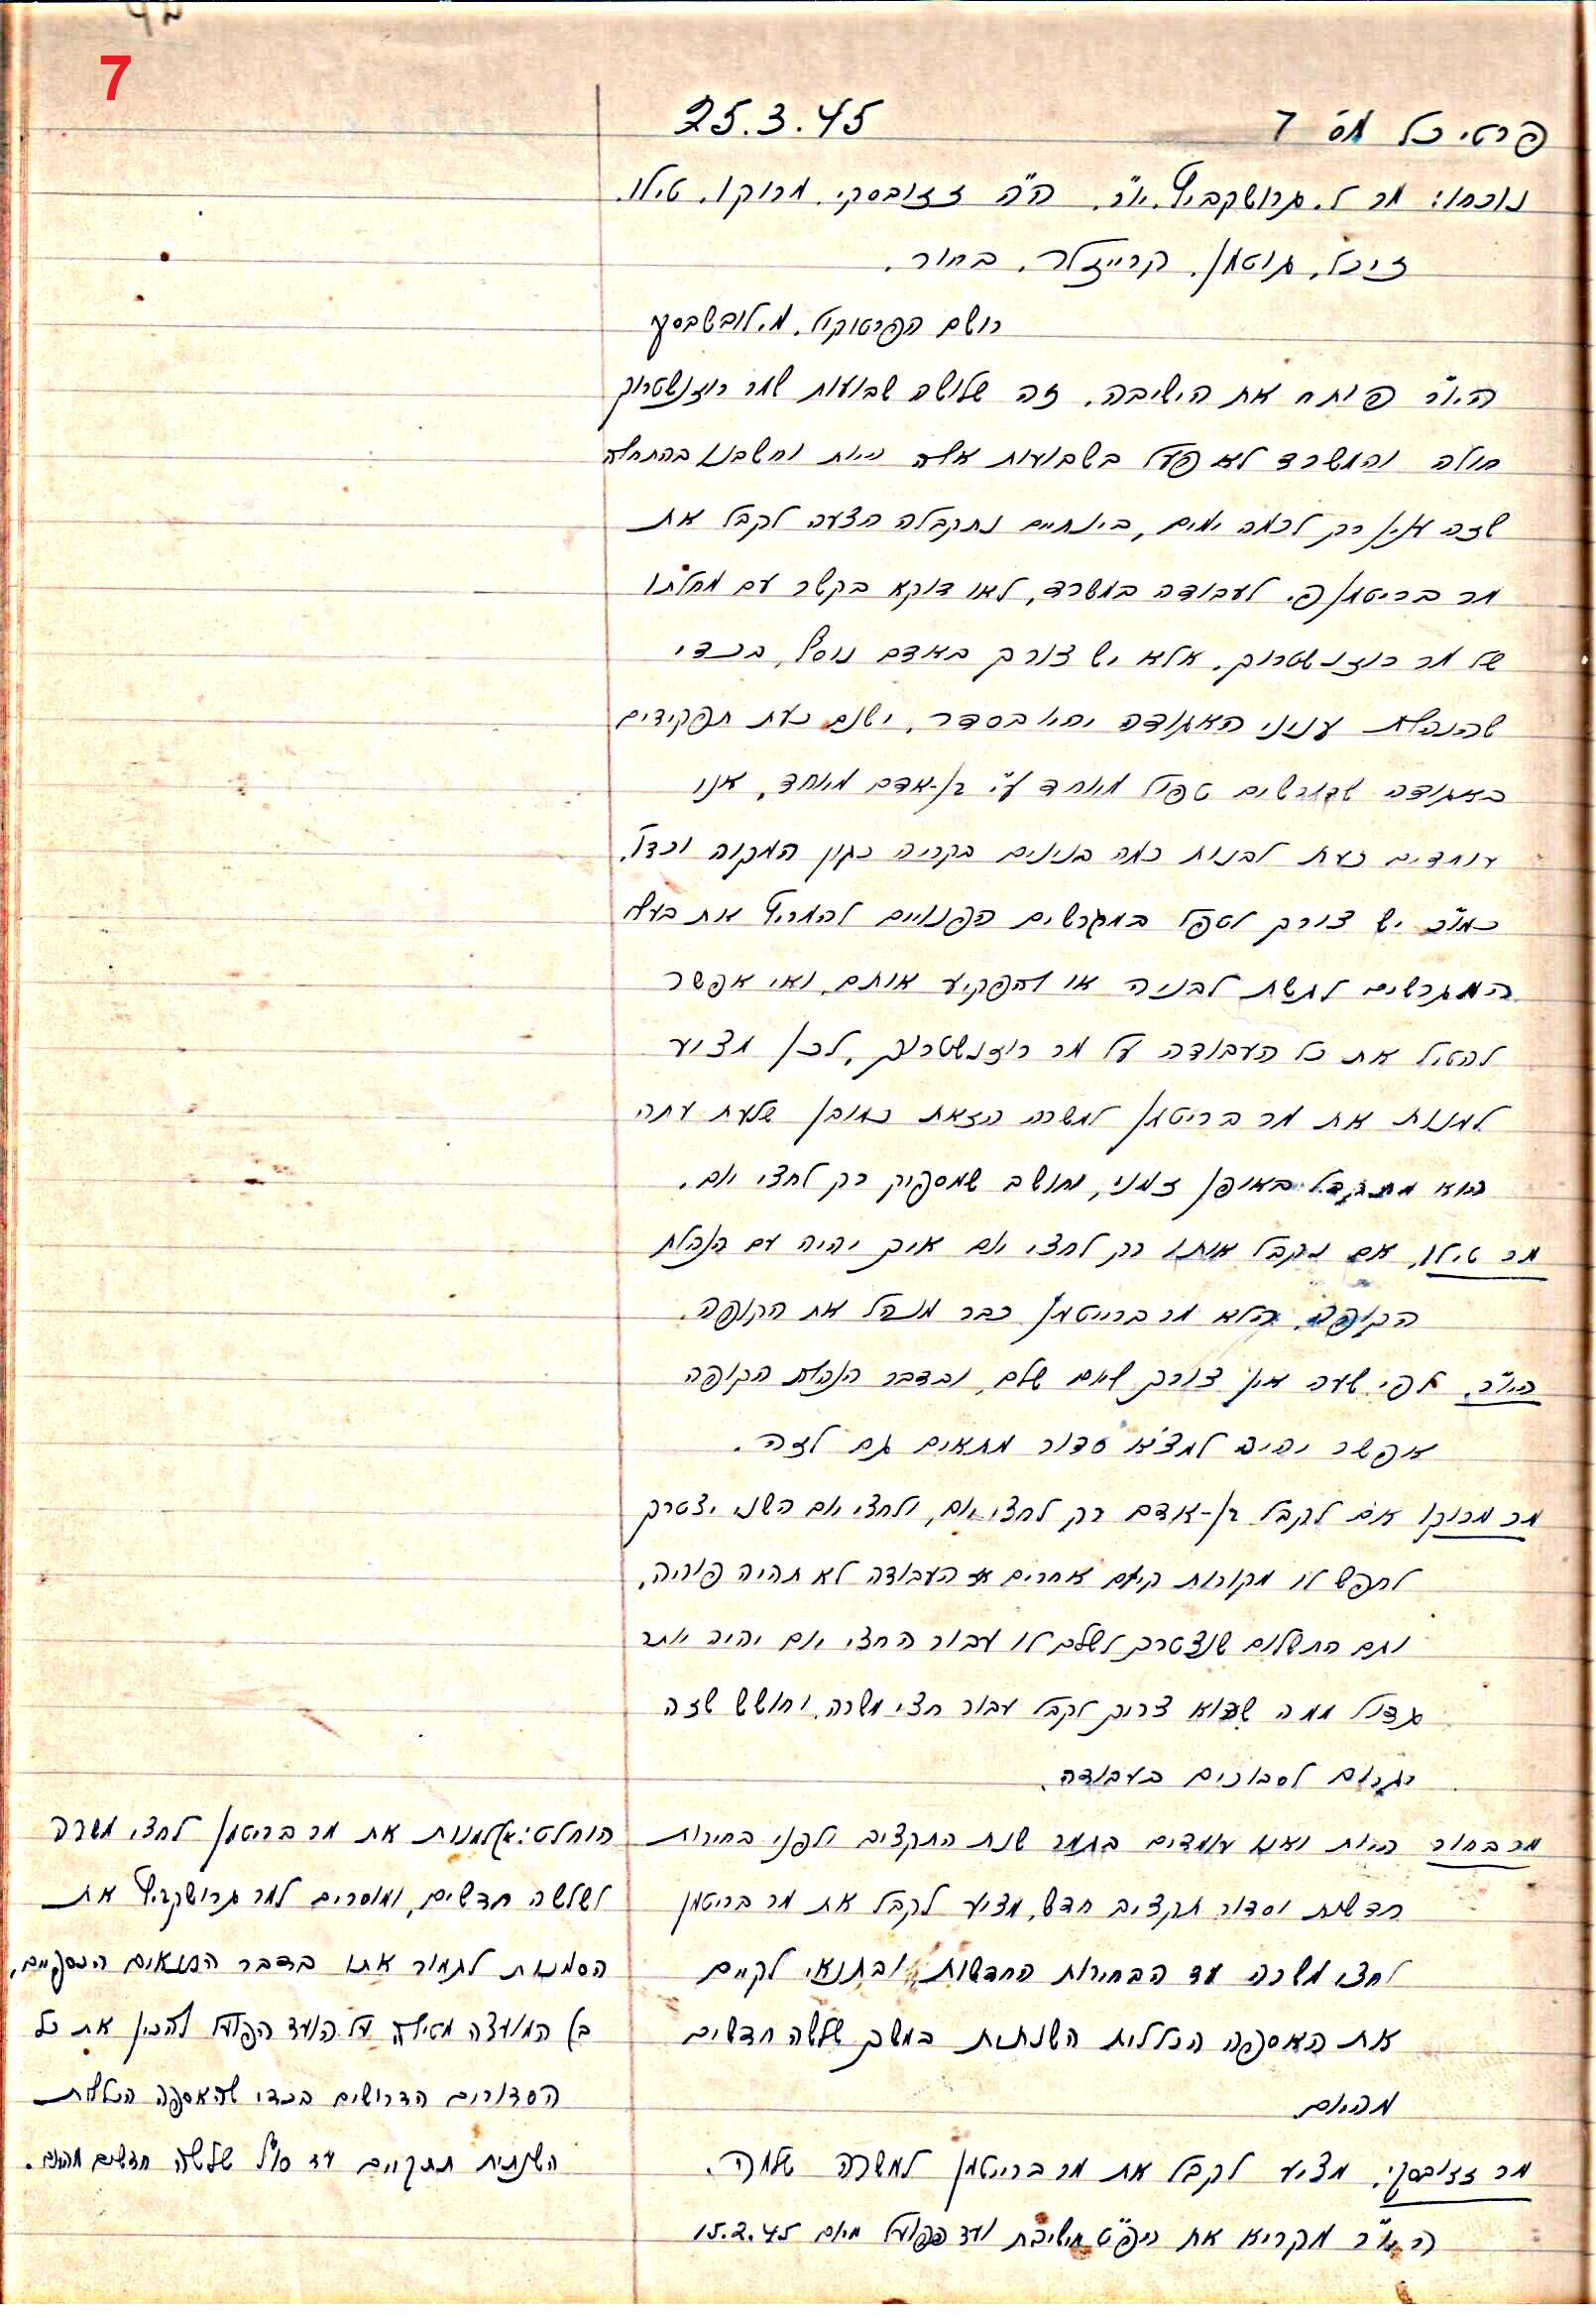 7
פרטי כל מס 7 25.3.45
נוכחו: מר ל. גרושקביץ. יו"ר. ה"ה זזובסקי. מרוקו. טילו.
זיכל. גוטמן. קרייזלר. בחור.
רושם הפרטוקול. מ.לובשבסקי
היו"ר פותח את הישיבה. זה שלושה שבועות שמר רוזנשטרוך
חולה והמשרד לא פעל בשבועות אלה היות וחשבנו בהתחלה
שזה ענין רק לכמה ימים, בינתיים נתקבלה הצעה לקבל את
מר בריטמן פ. לעבודה במשרד, לאו דוקא בקשר עם מחלתו
של מר רוזנשטרוך. אלא יש צורך באדם נוסף, בכדי
שהנהלת עניני האגודה יהיו בסדר. ישנם כעת תפקידים
באגודה שדורשים טפול מיוחד ע"י בן-אדם מיוחד. אנו
עומדים כעת לבנות כמה בנינים בקריה כגון המקוה וכדו'.
כמו"כ יש צורך לטפל במגרשים הפנויים להמריץ את בעלי
המגרשים לגשת לבניה או להפקיע אותם. ואי אפשר
להטיל את כל העבודה על מר רוזנשטרוך, לכן מציע
למנות את מר בריטמן למשרה הזאת כמובן שלעת עתה
הוא מתקבל באופן זמני, וחושב שמספיק רק לחצי יום.
מר טילו. אם נקבל אותו רק לחצי יום איך יהיה עם הנהלת
הקופה. הלא מר ברייטמן כבר מנהל את הקופה.
היו"ר. לפי שעה אין צורך ליום שלם, ובדבר הנהלת הקופה
אפשר יהיה למצוא סדור מתאים גם לזה.
מר מרוקו אם לקבל בן-אדם רק לחצי יום, ולחצי יום השני יצטרך
לחפש לו מקורות קיום אחרים אז העבודה לא תהיה פוריה,
וגם התשלום שנצטרך לשלם לו עבור החצי יום יהיה יותר
גדול ממה שהוא צריך לקבל עבור חצי משרה. וחושש שזה
יגרום לסבוכים בעבודה.
מר בחור היות ואנו עומדים בגמר שנת התקציב ולפני בחירות
חדשות וסדור תקציב חדש, מציע לקבל את מר בריטמן
לחצי משרה עד הבחירות החדשות, ובתנאי לקיים
את האספה הכללית השנתית במשך שלשה חדשים
מהיום
מר זזובסקי. מציע לקבל את מר ברייטמן למשרה שלמה.
היו"ר מקריא את הפ"ט מישיבת ועד הפועל מיום 15.2.45
הוחלט: א) למנות את מר בריטמן לחצי משרה
לשלשה חדשים, ומוסרים למר גרושקביץ את
הסמכות לגמור אתו בדבר התנאים הכספיים,
ב) המועצה מטילה על הועד הפועל להכין את כל
הסדורים הדרושים בכדי שהאספה הכללית
השנתית תתקיים עד סוף שלשה חדשים מהיום.